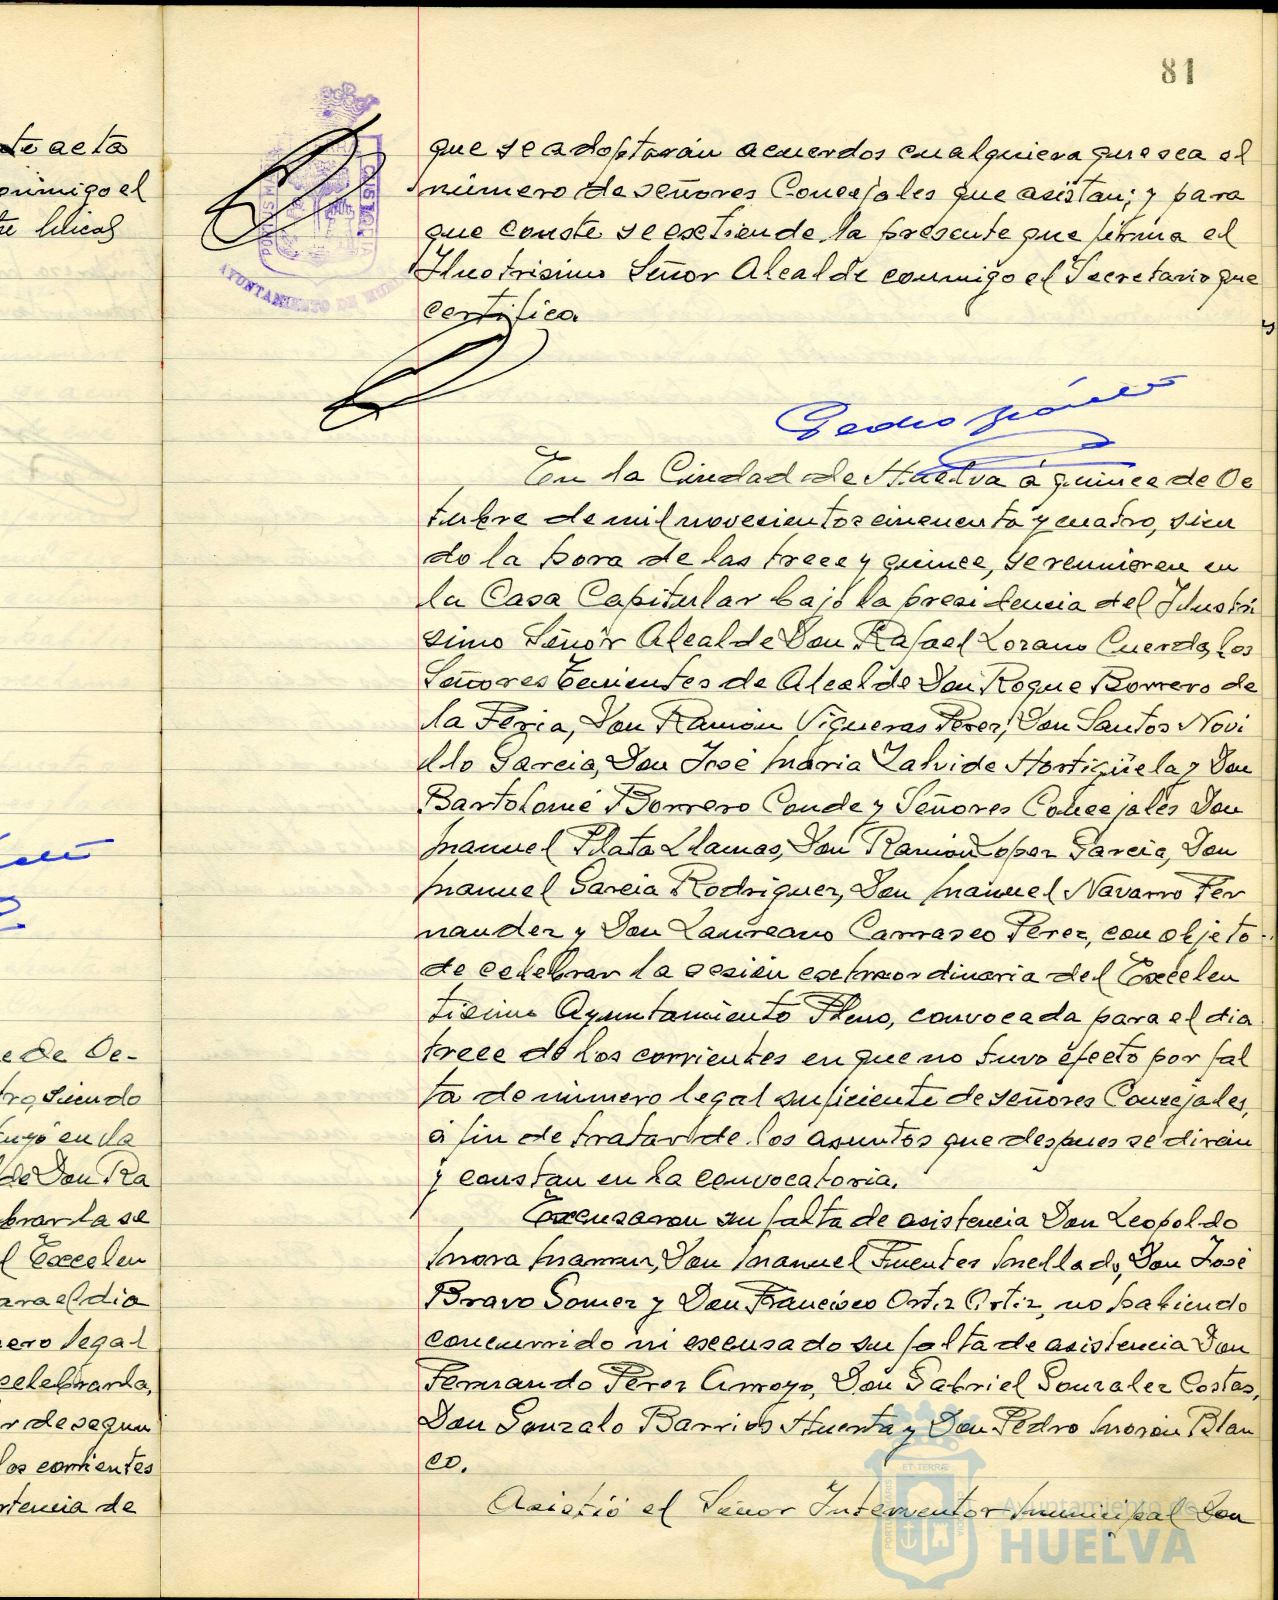 81
te acta
conmigo el
que se adoptarán acuerdos cualquiera que sea el
número de señores Concejales que asistan; y para
que conste se extiende la presente que firma el
Ilustrisimo Señor Alcalde conmigo el Secretario que
certifico.
AYUNTAMIENTO DE HUELVA
CUSTODIA
Pedro
En la Ciudad de Huelva á quince de Oc
tubre de mil novecientos cincuenta y cuatro, sien
do la hora de las trece y quince, se reunieron en
la Casa Capitular bajo la presidencia del Ilustri
simo Señor Alcalde Don Rafael Lozano Cuerda, los
Señores Tenientes de Alcalde Don Roque Borrero de
la Feria, Don Ramón Vigueras Perez, Don Santos Novi
llo Garcia, Don José Maria Zalvide Hortigüela y Don
Bartolomé Borrero Conde y Señores Concejales Don
Manuel Plata Llamas, Don Ramón Lopez Garcia, Don
Manuel Garcia Rodriguez, Don Manuel Navarro Fer
nandez y Don Laureano Carrasco Perez, con objeto
de celebrar la sesión extraordinaria del Excelen
tisimo Ayuntamiento Pleno, convocada para el dia
trece de los corrientes en que no tuvo efecto por fal
ta de número legal suficiente de señores Concejales,
á fin de tratar de los asuntos que despues se dirán
y constan en la convocatoria.
Excusaron su falta de asistencia Don Leopoldo
Mora Mamrur, Don Manuel Fuentes Mellado, Don José
Bravo Gomez y Don Francisco Ortiz Ortiz, no habiendo
concurrido ni excusado su falta de asistencia Don
Fernando Perez Arroyo, Don Gabriel Gonzalez Costas,
Don Gonzalo Barrios Huerta y Don Pedro Morón Blan
co.
Asistió el Señor Interventor Municipal Don
e de Oc-
tro, siendo
tuyó en la
de Don Ra
brarla se
l Excelen
ara el dia
ero legal
celebrarla,
r de segun
los corrientes
rtencia de
Ayuntamiento de
HUELVA